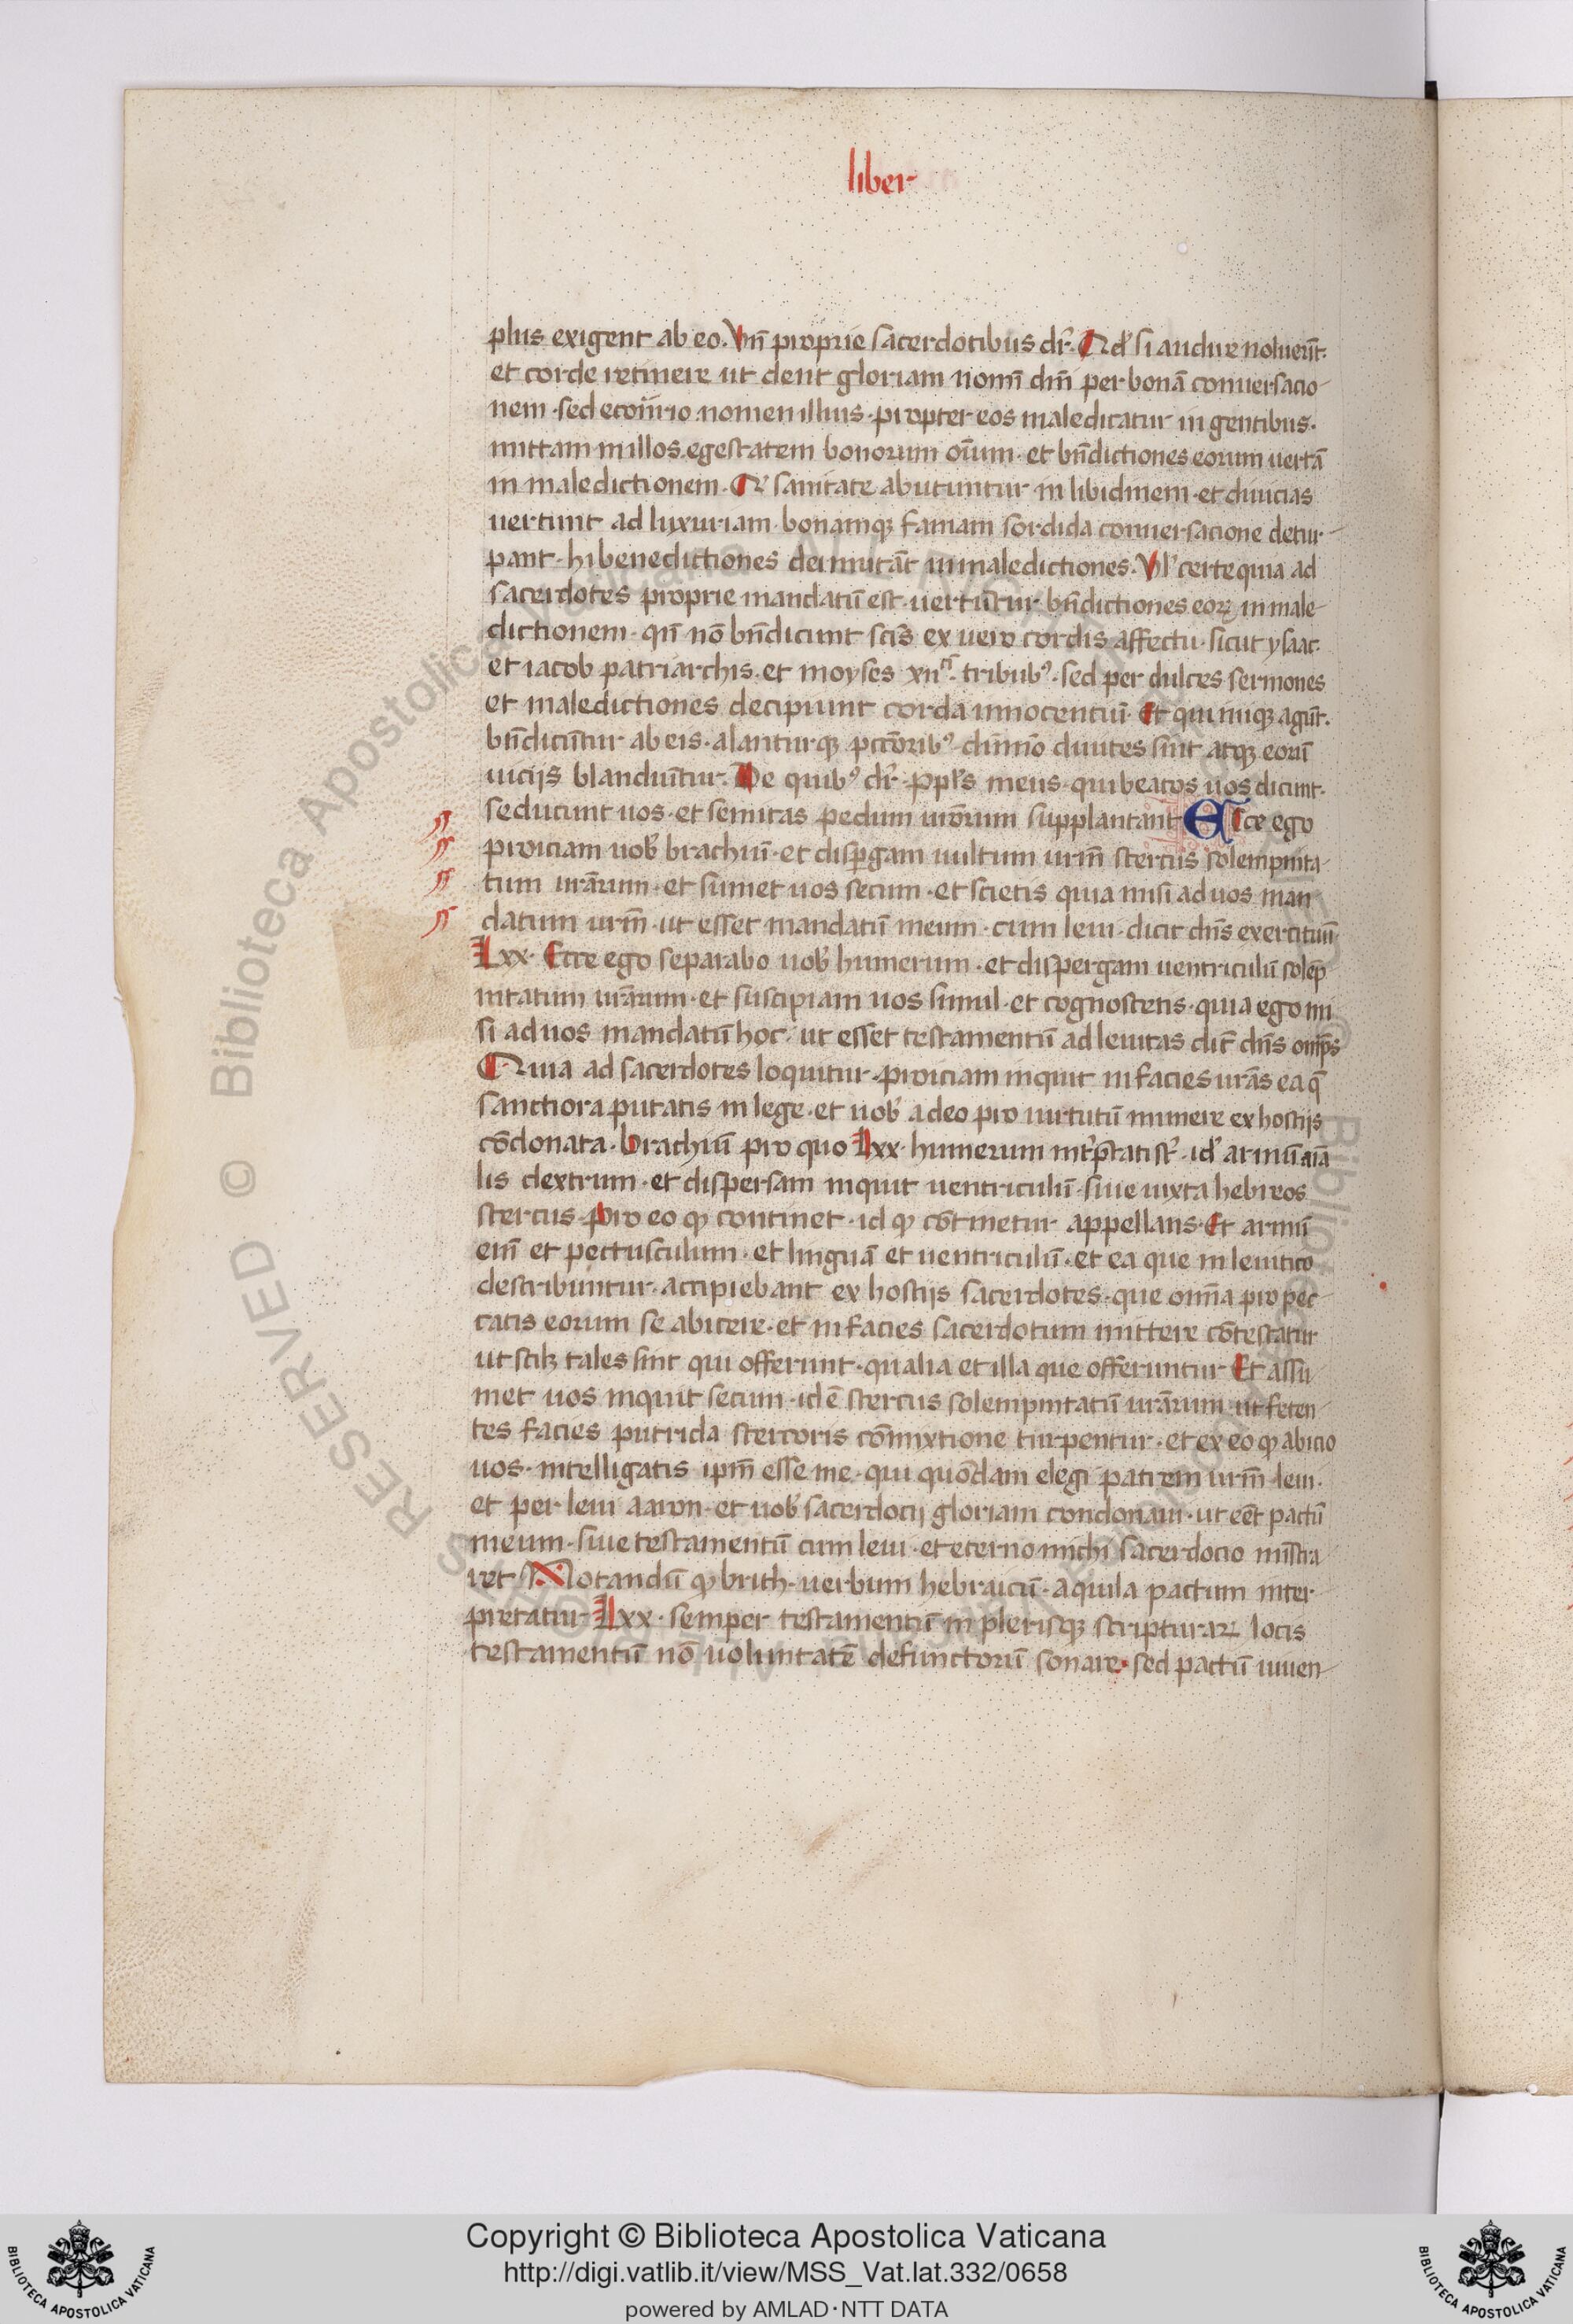 liber
plus exigent ab eo. Vñ proprie sacerdotibus dr̃. Qd' si audire noluerĩt.
et corde retinere ut dent gloriam nomĩ dm̃ per bonã conuersacio-
nem . sed econtrio nomen illius . propter eos maledicatur in gentibus .
mittam in illos egestatem bonorum oĩum . et bñdictiones eorum uertã
in maledictionem . Q' sanitate abutuntur in libidinem . et diuicias
uertunt ad luxuriam . bonamqꝫ famam sordida conuersacione detur-
pant . hi benedictiones dei mutãt in maledictiones . Vl' certe quia ad
sacerdotes proprie mandatũ est . uertũtur bñdictiones eoꝝ in male-
dictionem . qñ nõ bñdicunt scĩs ex uero cordis affectu . sicut ysaac .
et iacob patriarchis . et moyses xii tribubꝰ . sed per dulces sermones
et maledictiones decipiunt corda innocentiũ . Et qui iniqꝫ agũt .
bñdicũtur ab eis . alanturqꝫ pctõribꝰ . dũmõ diuites sint atqꝫ eorũ
uicijs blandiũtur . De quibꝰ dr̃ . ppl's meus . qui beatos uos dicunt .
seducunt uos . et semitas pedum urõrum supplantant Ecce ego
proiciam uob' brachiũ . et disꝑgam uultum urm̃ stercus solempnita-
tum urãrum . et sumet uos secum . et scietis quia misi ad uos man
datum urm̃ . ut esset mandatũ meum . cum leui . dicit dñs exercituũ
Lxx . Ecce ego separabo uob' humerum . et dispergam uentriculũ solẽp
nitatum urãrum . et suscipiam uos simul . et cognoscetis . quia ego mi
si ad uos mandatũ hoc . ut esset testamentũ ad leuitas dic̃ dñs omp̃s
Quia ad sacerdotes loquitur . proiciam inquit in facies urãs ea q̃
sanctiora putatis in lege . et uob' a deo pro uirtutũ munere ex hostijs
cõdonata . brachiũ pro quo Lxx . humerum int'p̃tati st' . id' armũ aĩa
lis dextrum . et dispersam inquit uentriculũ . siue iuxta hebreos
stercus . pro eo ꝙ continet . id ꝙ cõtinetur appellans . Et armũ
eñ et pectusculum . et linguã et uentriculũ . et ea que in leuitico
describuntur . accipiebant ex hostijs sacerdotes . que omña pro pec-
catis eorum se abicere . et in facies sacerdotum mittere cõtestatur
ut scilꝫ tales sint qui offerunt . qualia et illa que offeruntur Et assu
met uos inquit secum . id ẽ stercus solempnitatũ urãrum . ut feten
tes facies putrida stercoris cõmixtione turpentur . et ex eo ꝙ abicio
uos . intelligatis ipm̃ esse me . qui quõdam elegi patrem urm̃ leui .
et per leui aaron . et uob' sacerdocij gloriam condonaui . ut eẽt pactũ
meum . siue testamentũ cum leui . et eterno michi sacerdocio mistra
ret Notandũ ꝙ brith . uerbum hebraicũ . aquila pactum inter-
pretatur Lxx . semper testamentũ in plerisqꝫ scripturaꝝ locis
testamentũ nõ uoluntatẽ defunctorũ sonare . sed pactũ uiuen-
Copyright © Biblioteca Apostolica Vaticana
http://digi.vatlib.it/view/MSS_Vat.lat.332/0658
powered by AMLAD·NTT DATA
BIBLIOTECA APOSTOLICA VATICANA
BIBLIOTECA APOSTOLICA VATICANA